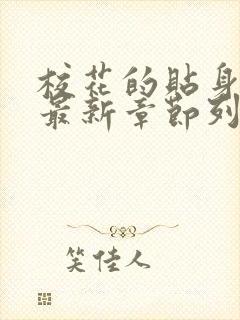 校花的貼身
最新章節列
笑佳人